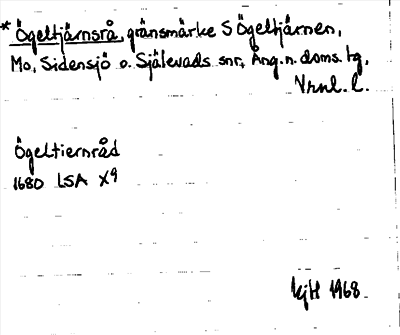 * Ögeltjärnsrå, gränsmärke S Ögeltjärnen,
Mo, Sidensjö o. Själevads snr, Ång. n. doms. tg,
Vrnl. l.
Ögeltiernråd
1680 LSA X9
kjH 1968